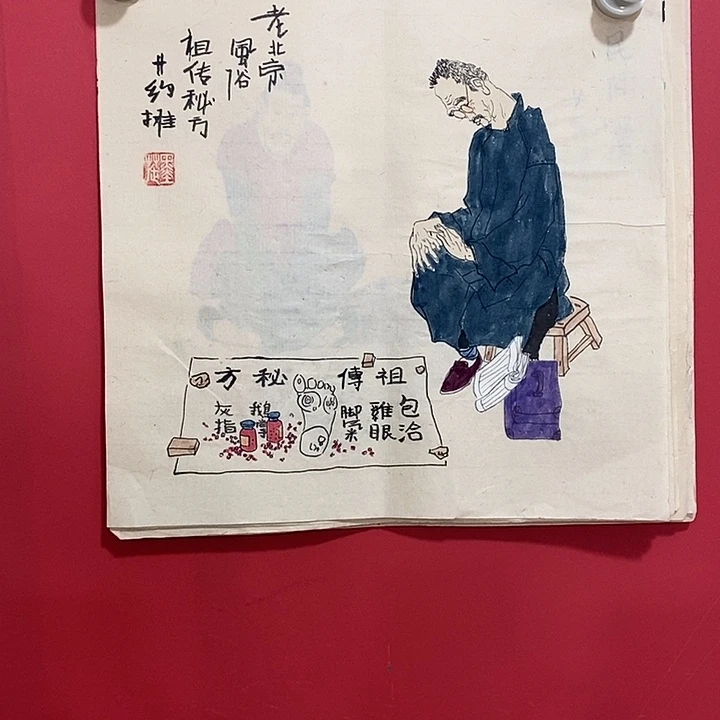 老北京
風俗
祖传秘方
药摊
祖傳秘方
包治
雞眼
脚氣
鵝掌
灰指